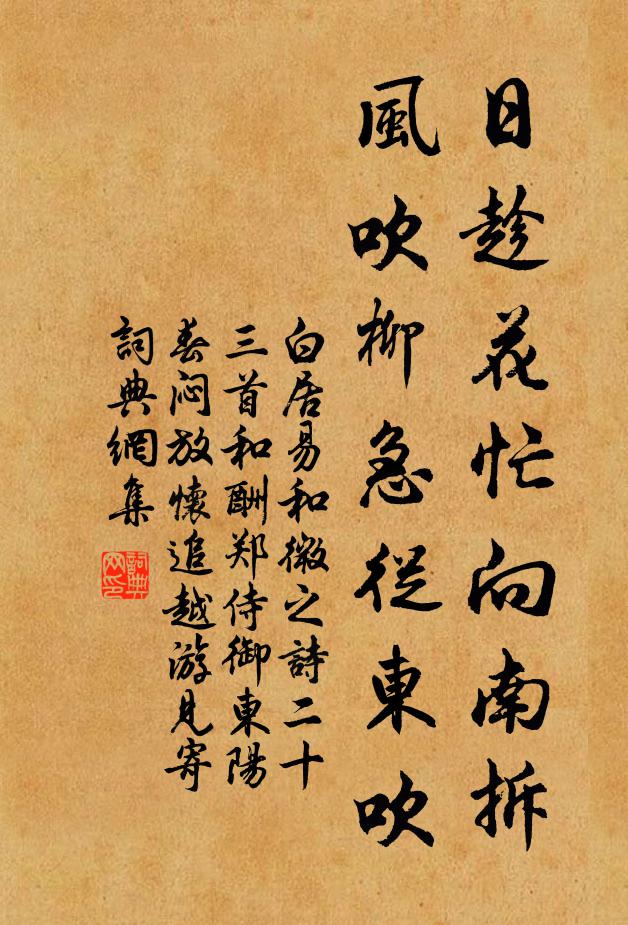 日趁花忙向南拆
風吹柳急從東吹
白居易和微之詩二十
三首和酬郑侍御東陽
春闷放懷追越游見寄
詞典網集
詞典
网印